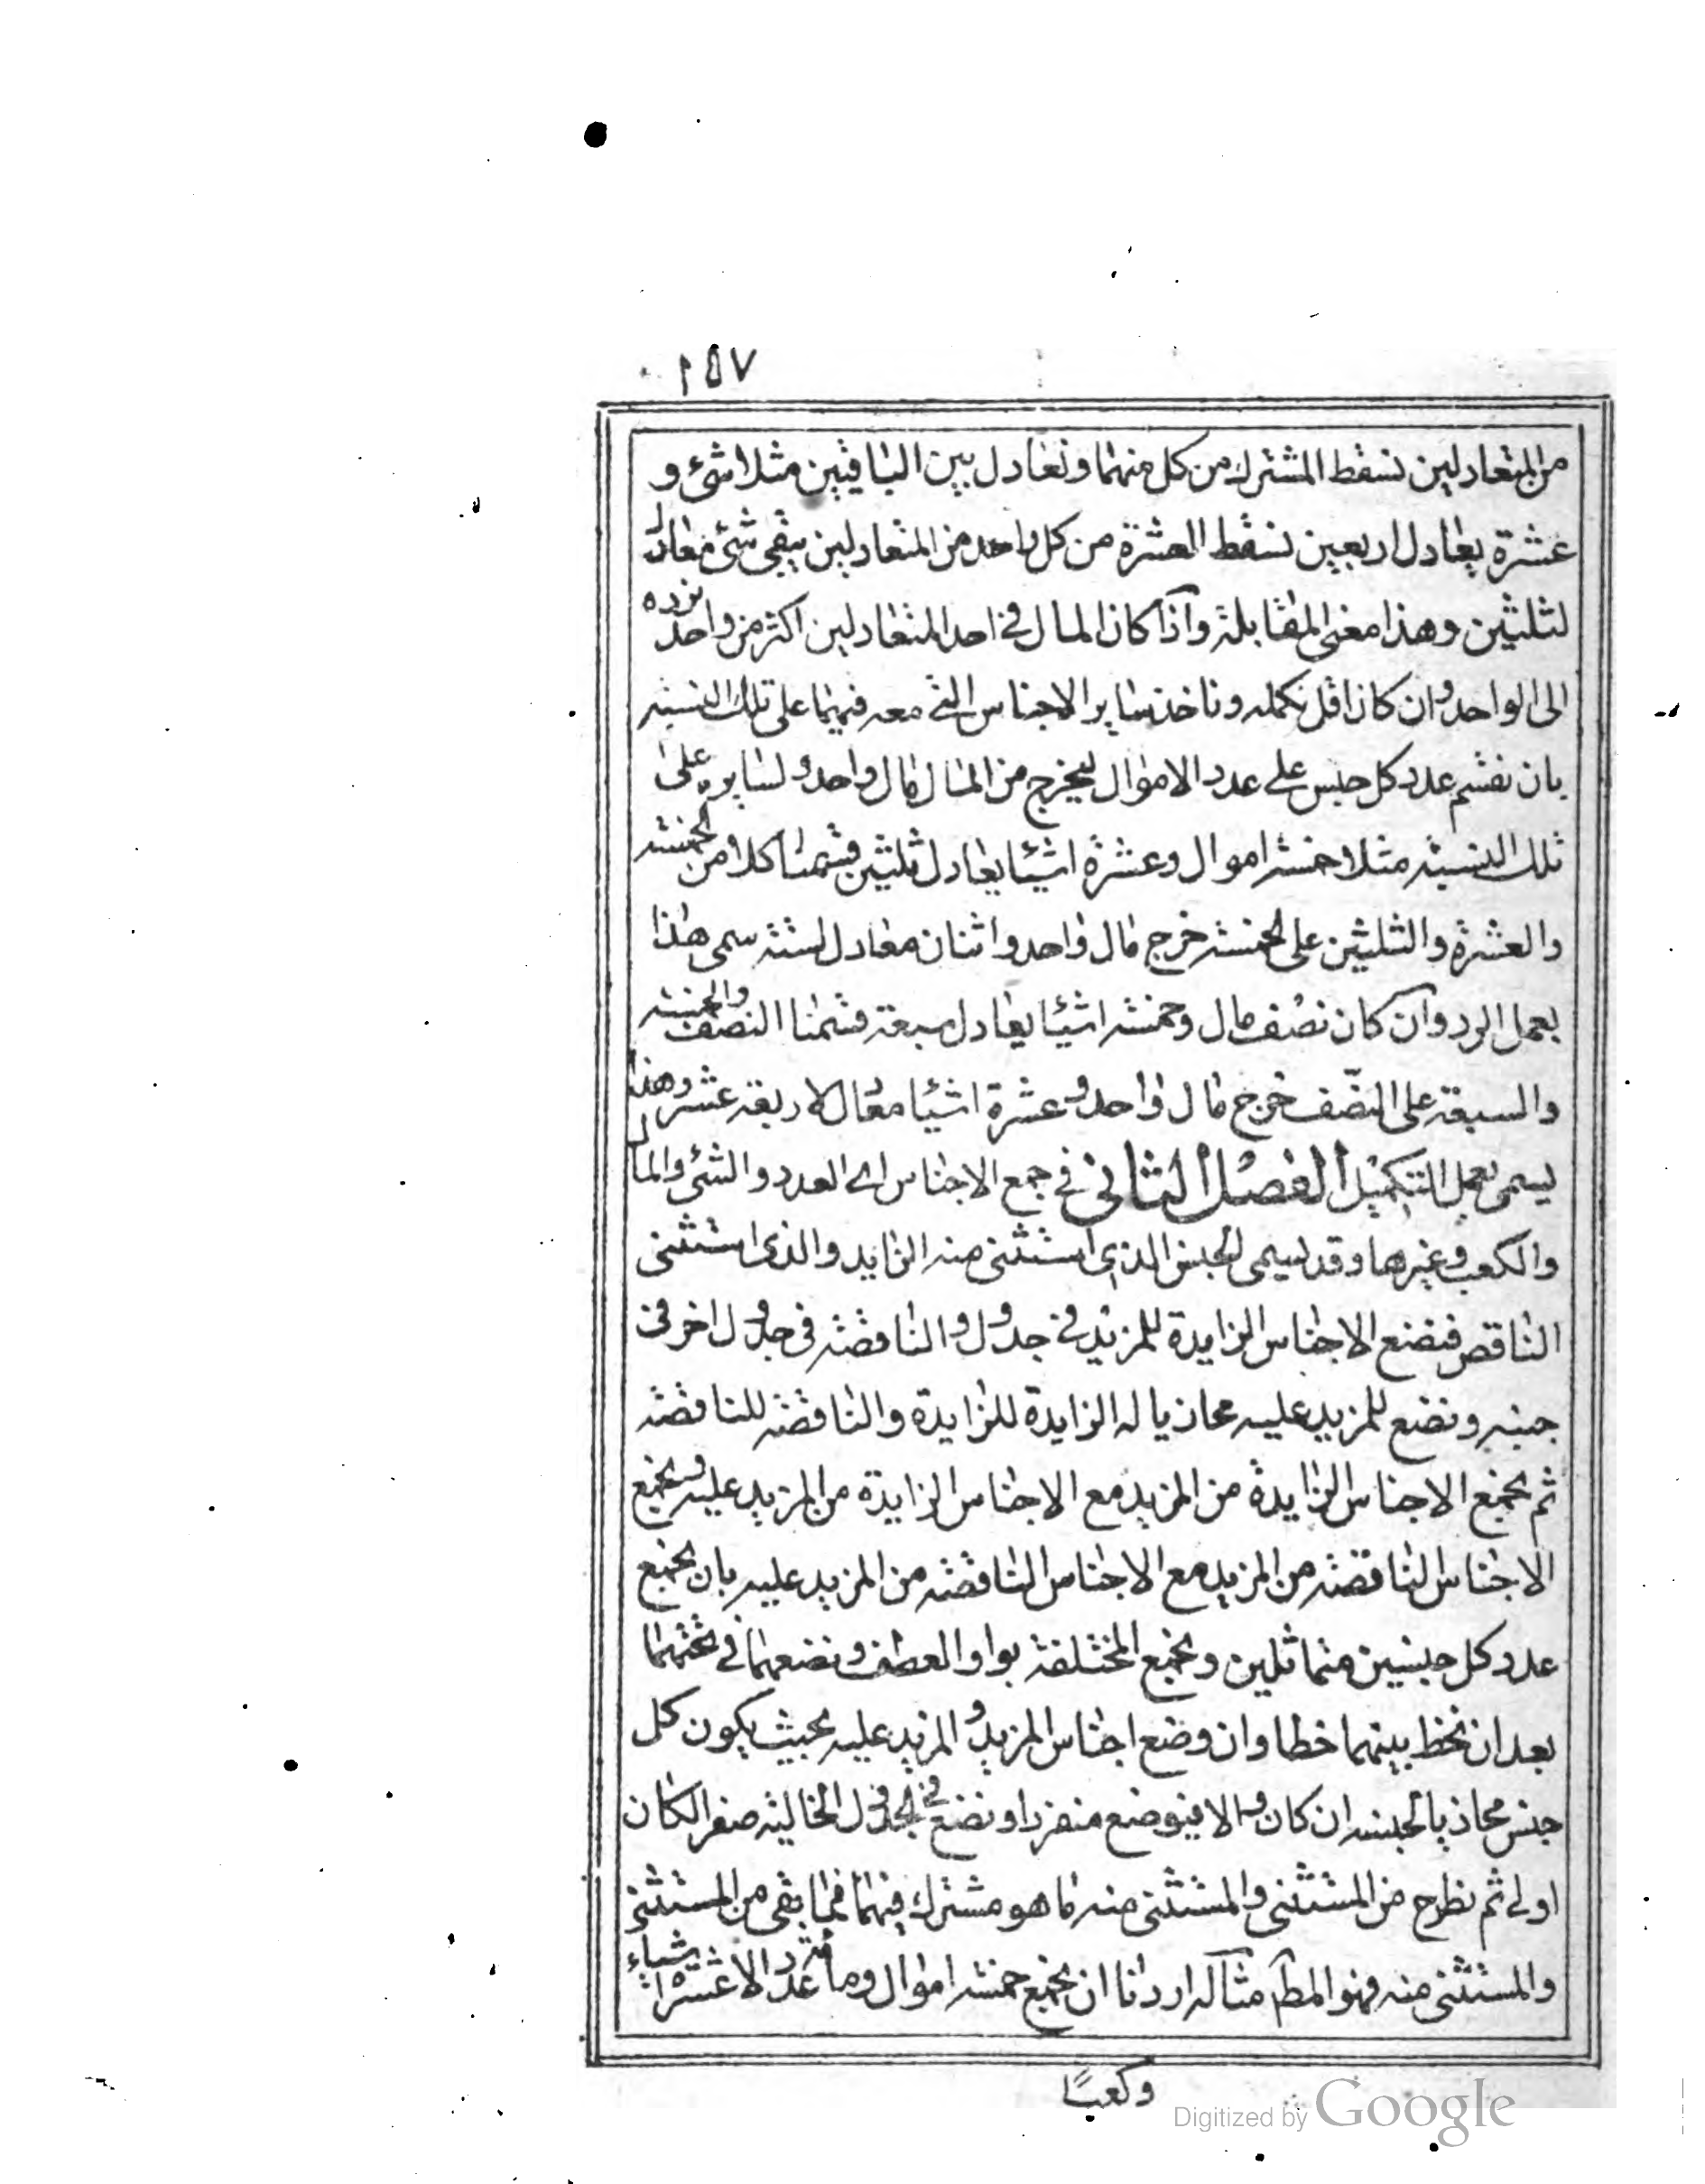 ١٥٧
من المتعادلين نسقط المشترك من كل منهما وتعادل بين الباقيين مثلا شئ و
عشرة يعادل اربعين نسقط العشرة من كل واحد من المتعادلين يبقى شئ معادل
لثلثين وهذا معنى المقابلة واذا كان المال فى احد المتعادلين اكثر من واحد نرده
الى الواحد وان كان اقل نكمله وناخذ ساير الاجناس التى معه فيهما على تلك النسبة
بان نقسم عدد كل جنس على عدد الاموال ليخرج من المال مال واحد ولسايره على
تلك النسبة مثلا خمسة اموال وعشرة اشيئا يعادل ثلثين قسمنا كلا من الخمسة
والعشرة والثلثين على الخمسة خرج مال واحد واثنان معادل لستة سمى هذا
بعمل الرد وان كان نصف مال وخمسة اشيئا يعادل سبعة قسمنا النصف والخمسة
والسبعة على النصف خرج مال واحد وعشرة اشيئا معال لاربعة عشر وهذا
يسمى بعمل التكميل الفصل الثانى فى جمع الاجناس اى العدد والشئ والمال
والكعب وغيرها وقد يسمى الجنس الذى استثنى منه الزايد والذى استثنى
الناقص فنضع الاجناس الزايدة للمزيد فى جدول والناقصة فى جدول اخر فى
جنبه ونضع للمزيد عليه محاذيا له الزايدة للزايدة والناقصة للناقصة
ثم نجمع الاجناس الزايدة من المزيد مع الاجناس الزايدة من المزيد عليه ونجمع
الاجناس الناقصة من المزيد مع الاجناس الناقصة من المزيد عليه بان نجمع
عدد كل جنسين متماثلين ونجمع المختلفة بواو العطف ونضعهما فى تحتهما
بعد ان نخط بينهما خطا وان وضع اجناس المزيد والمزيد عليه بحيث يكون كل
جنس محاذيا لجنسه ان كان والا فيوضع منفردا ونضع فى الجدول الخالية صفرا لكان
اولى ثم نطرح من المستثنى والمستثنى منه ما هو مشترك فيهما فما بقى من المستثنى
والمستثنى منه فهو المطآ مثاله اردنا ان نجمع خمسة اموال وما عدد الا عشرة اشياء
وكعبًا
Digitized by Google